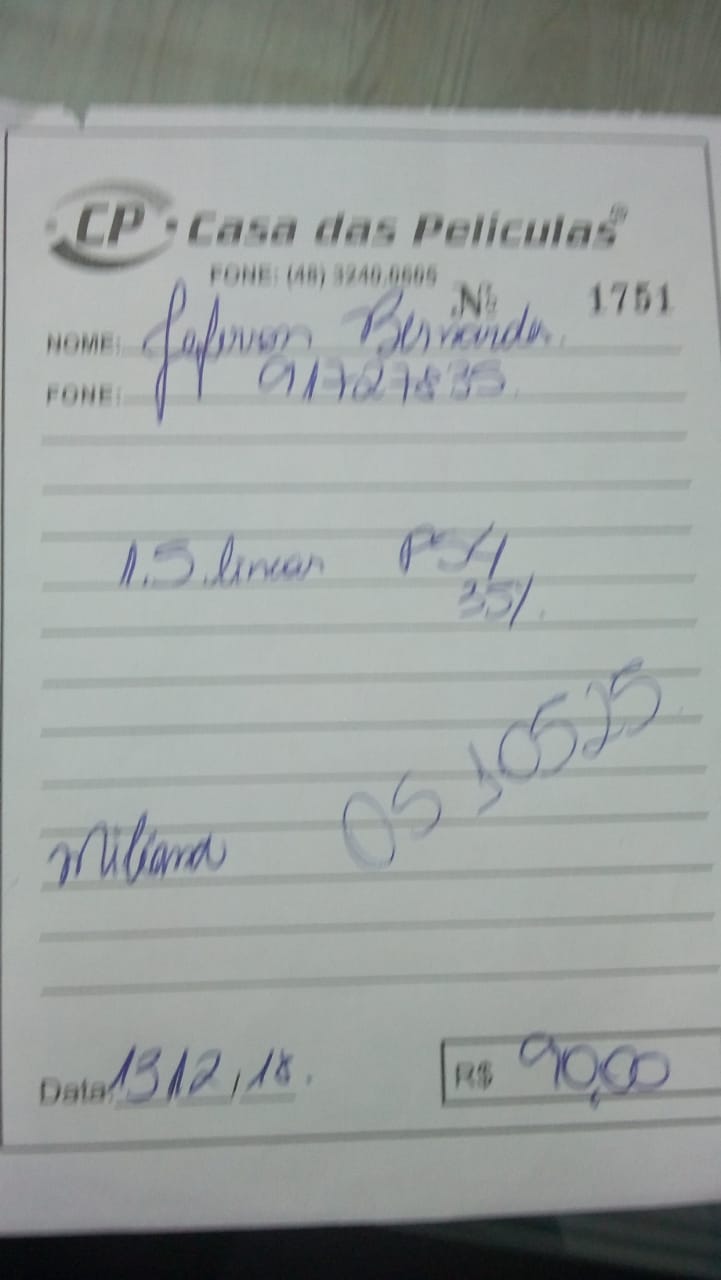 CP Casa das Películas ®
FONE: (48) 3240.6605
Nº 1751
NOME: Jeferson Bernardes
FONE: 91727835
1.5 linear PS4
35%
05 10525
Data: 13 12, 18.
R$ 90,00